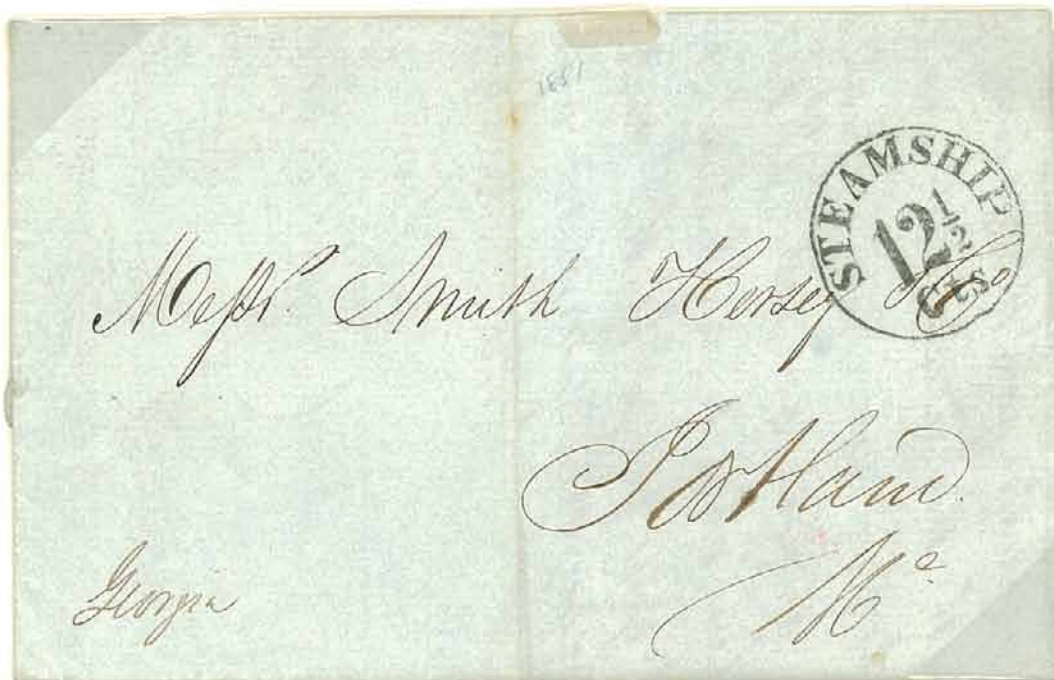 1851
STEAMSHIP
12 1/2
Cts
Messrs. Smith Hersey & Co
Portland
Me
Georgia